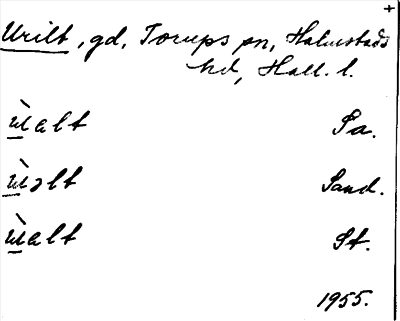 +
Urilt, gd, Torups sn, Halmstads
hd, Hall. l.
ùalt Sa.
ùəlt Sand.
ùalt St.
1955.